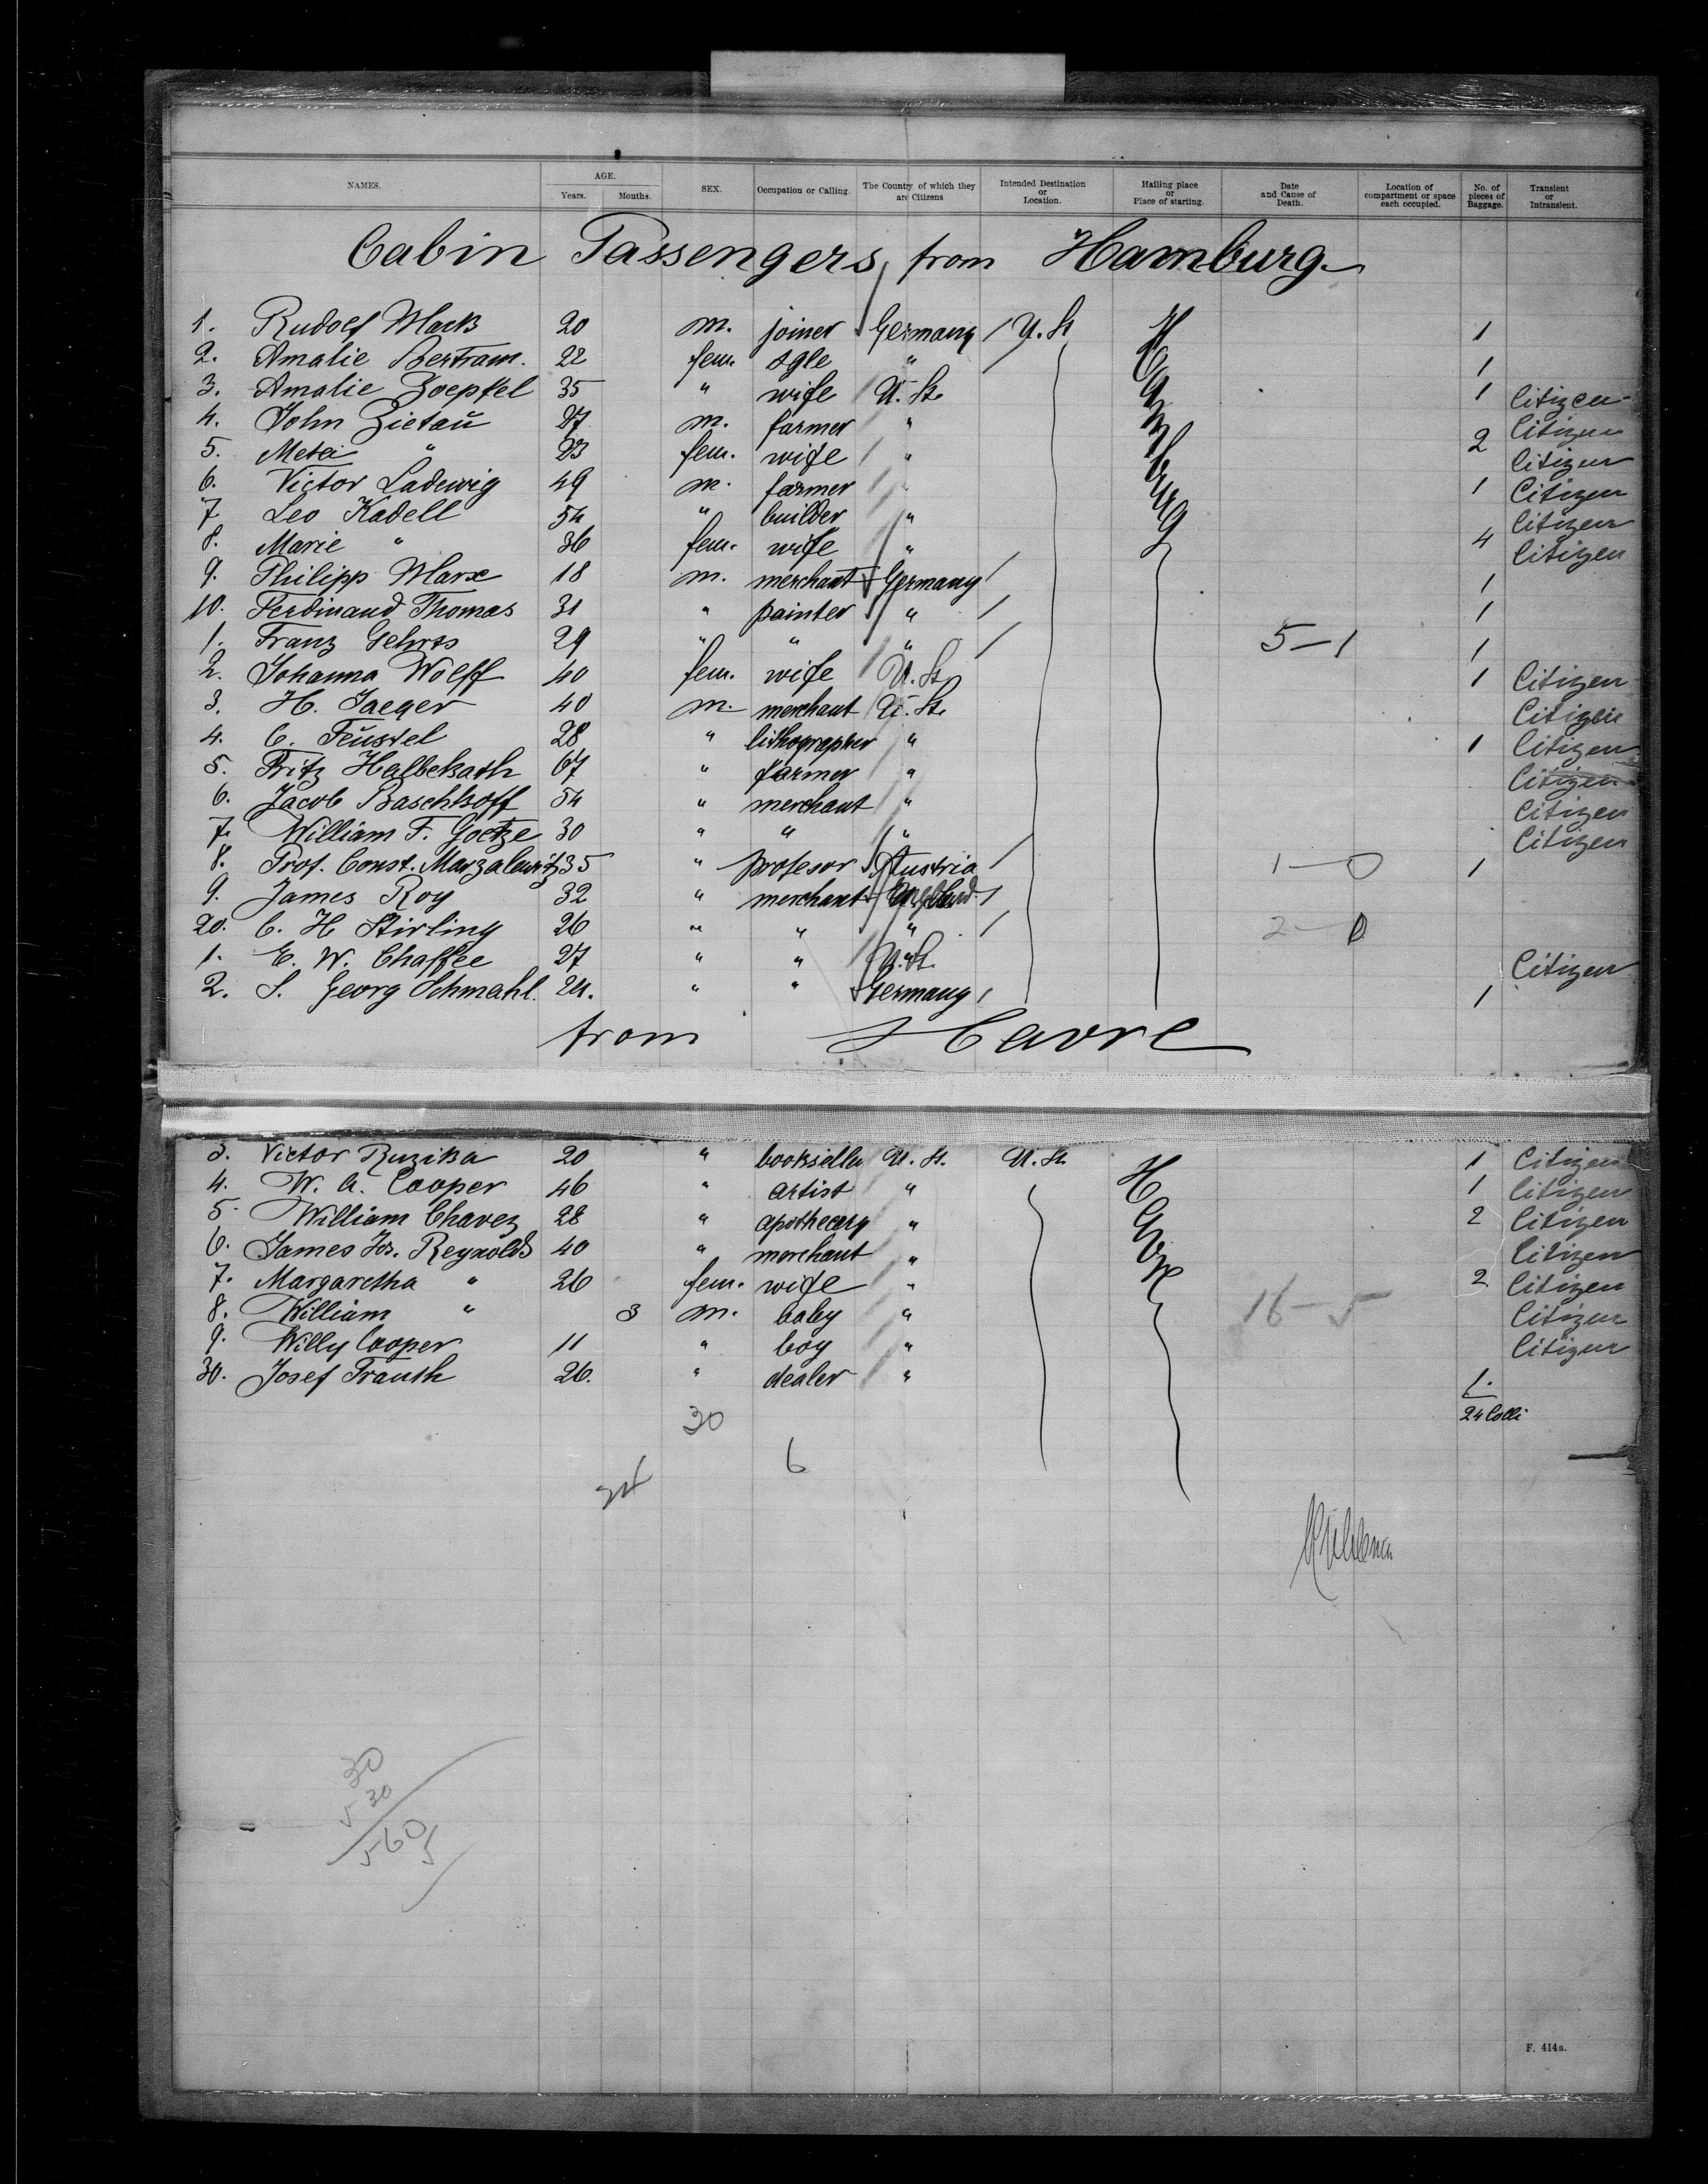 NAMES. AGE. Years. Months. SEX. Occupation or Calling. The Country of which they are Citizens Intended Destination or Location. Hailing place or Place of starting. Date and Cause of Death. Location of compartment or space each occupied. No. of pieces of Baggage. Transient or Intransient.
Cabin Passengers from Hamburg
1. Rudolf Mack 20 m. joiner Germany / U. St. 1
2. Amalie Bertram. 22 fem. sgle " / 1
3. Amalie Zoepfel 35 " wife U. St. 1 Citizen
4. John Zietaŭ 27 m. farmer " Citizen
5. Meta " 23 fem. wife " 2 Citizen
6. Victor Ladewig 49 m. farmer " 1 Citizen
7. Leo Kadell 54 " builder " Citizen
8. Marie " 36 fem. wife " 4 Citizen
9. Philipp Marx 18 m. merchant Germany / 1
10. Ferdinand Thomas 31 " painter " / 1
1. Franz Gehrts 29 " " " / 5-1 1
2. Johanna Wolff 40 fem. wife U. St. 1 Citizen
3. H. Jaeger 40 m. merchant U. St. Citizen
4. C. Feŭstel 28 " lithographer " 1 Citizen
5. Fritz Halbekath 67 " farmer " Citizen
6. Jacob Baschkoff 54 " merchant " Citizen
7. William F. Goetze 30 " " " Citizen
8. Prof. Const. 35 " profesor Austria / 1-0 1
9. James Roy 32 " merchant England /
20. C. H. Stirling 26 " " " / 2-0
1. E. W. Chaffee 27 " " U. St. Citizen
2. S. Georg Schmahl. 24. " " Germany / 1
from Havre
3. Victor Ruzika 20 " bookseller U. St. U. St. 1 Citizen
4. W. A. Cooper 46 " artist " 1 Citizen
5. William Chavez 28 " apothecary " 2 Citizen
6. James Jos. Reynolds 40 " merchant " Citizen
7. Margaretha " 26 fem. wife " 2 Citizen
8. William " 3 m. baby " 16-5 Citizen
9. Willy Cooper 11 " boy " Citizen
30. Josef Trauth 26. " dealer " 1.
30 24 Colli
6
24
30
530
560
5
F. 414a.